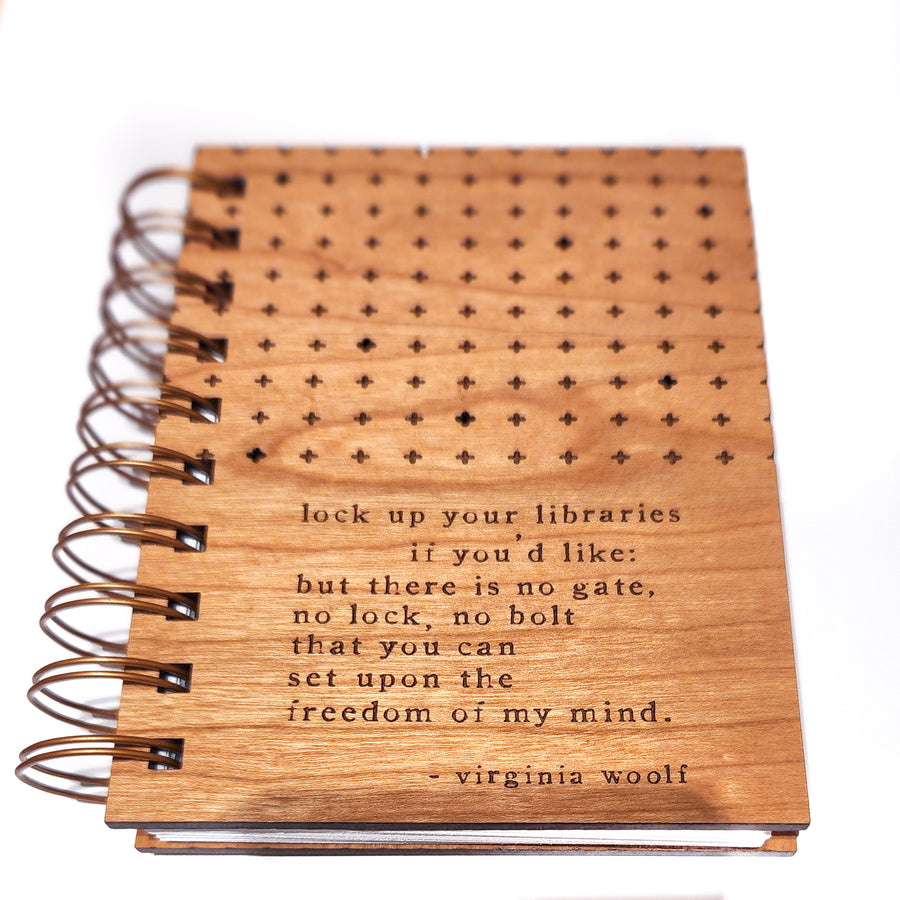 lock up your libraries
if you'd like:
but there is no gate,
no lock, no bolt
that you can
set upon the
freedom of my mind.
- virginia woolf